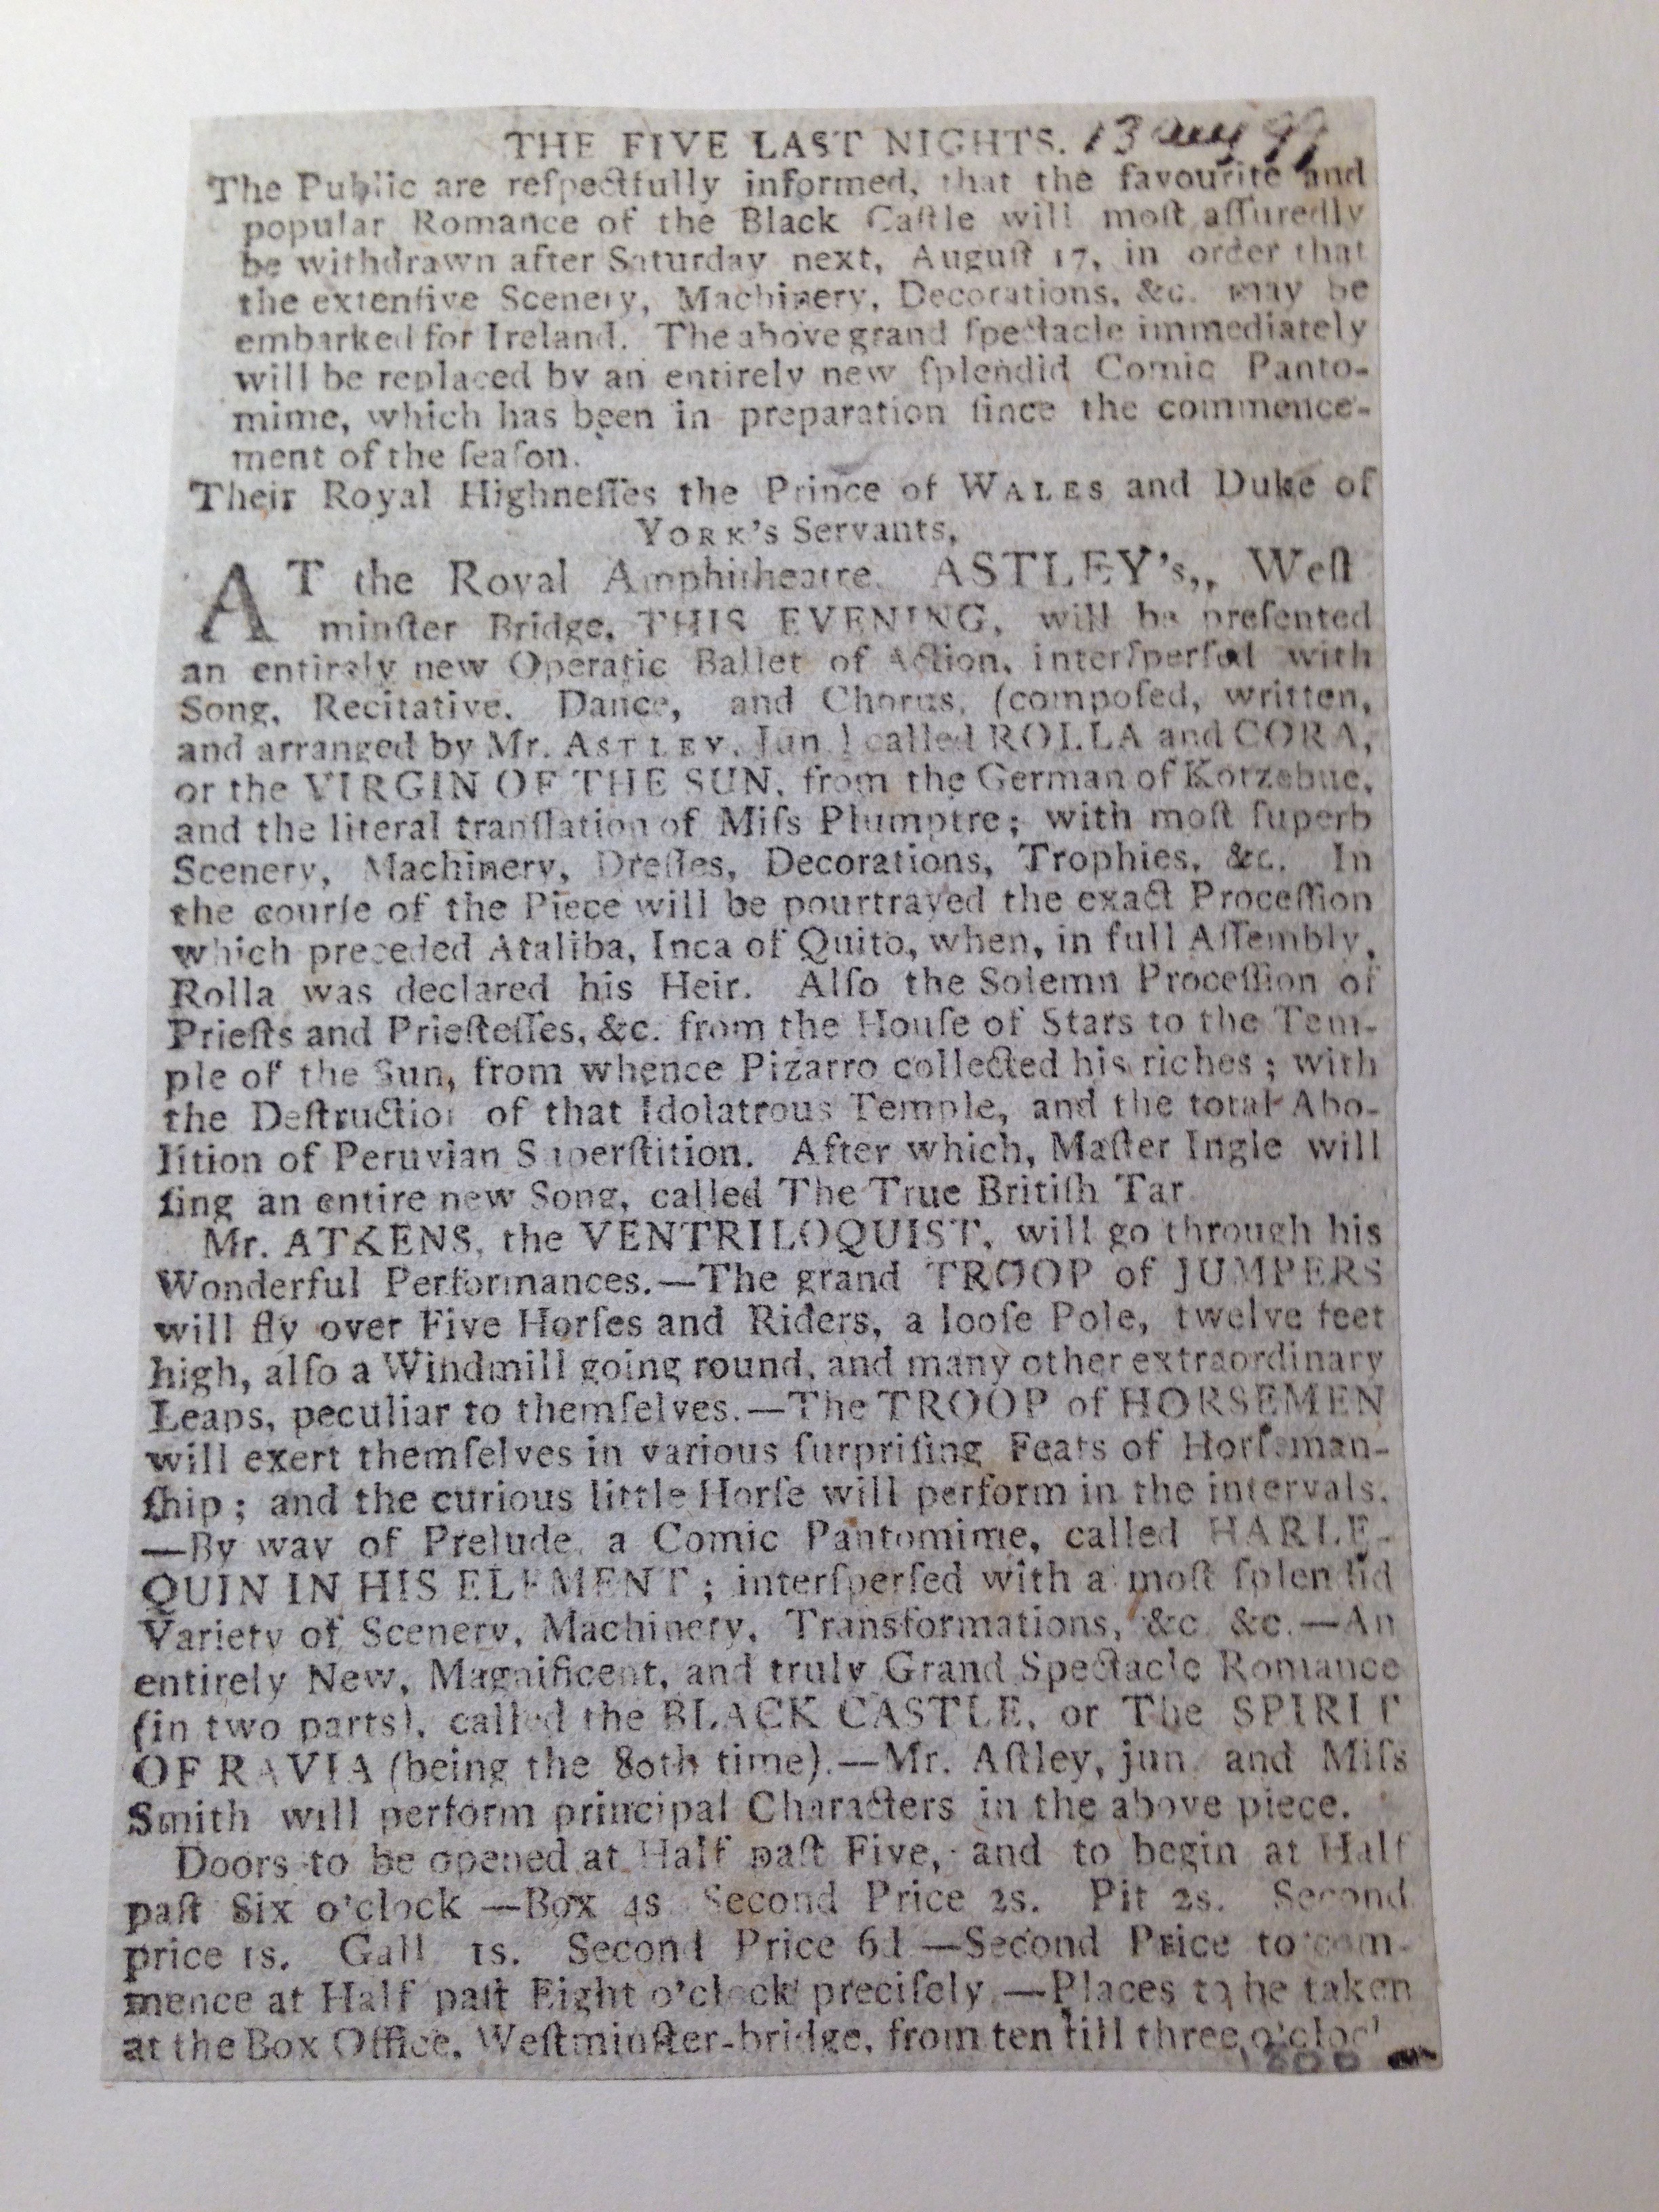 THE FIVE LAST NIGHTS. 13 Aug 99
The Public are reſpectfully informed, that the favourite and
popular Romance of the Black Caſtle will moſt aſſuredly
be withdrawn after Saturday next, Auguſt 17, in order that
the extenſive Scenery, Machinery, Decorations, &c. may be
embarked for Ireland. The above grand ſpectacle immediately
will be replaced by an entirely new ſplendid Comic Panto-
mime, which has been in preparation ſince the commence-
ment of the ſeaſon.
Their Royal Highneſſes the Prince of WALES and Duke of
YORK's Servants,
AT the Royal Amphitheatre, ASTLEY's,, Weſt
minſter Bridge, THIS EVENING, will be preſented
an entirely new Operatic Ballet of Action, interſperſed with
Song, Recitative, Dance, and Chorus, (compoſed, written,
and arranged by Mr. ASTLEY, Jun.) called ROLLA and CORA,
or the VIRGIN OF THE SUN, from the German of Kotzebue,
and the literal tranſlation of Miſs Plumptre; with moſt ſuperb
Scenery, Machinery, Dreſſes, Decorations, Trophies, &c. In
the courſe of the Piece will be pourtrayed the exact Proceſſion
which preceded Ataliba, Inca of Quito, when, in full Aſſembly,
Rolla was declared his Heir. Alſo the Solemn Proceſſion of
Prieſts and Prieſteſſes, &c. from the Houſe of Stars to the Tem-
ple of the Sun, from whence Pizarro collected his riches; with
the Deſtruction of that Idolatrous Temple, and the total Abo-
lition of Peruvian Superſtition. After which, Maſter Ingle will
ſing an entire new Song, called The True Britiſh Tar
Mr. ATKENS, the VENTRILOQUIST, will go through his
Wonderful Performances.—The grand TROOP of JUMPERS
will fly over Five Horſes and Riders, a looſe Pole, twelve feet
high, alſo a Windmill going round, and many other extraordinary
Leaps, peculiar to themſelves.—The TROOP of HORSEMEN
will exert themſelves in various ſurpriſing Feats of Horſeman-
ſhip; and the curious little Horſe will perform in the intervals.
—By way of Prelude, a Comic Pantomime, called HARLE-
QUIN IN HIS ELEMENT; interſperſed with a moſt ſplendid
Variety of Scenery, Machinery, Transformations, &c. &c.—An
entirely New, Magnificent, and truly Grand Spectacle Romance
(in two parts), called the BLACK CASTLE, or The SPIRIT
OF RAVIA (being the 80th time).—Mr. Aſtley, jun. and Miſs
Smith will perform principal Characters in the above piece.
Doors to be opened at Half paſt Five, and to begin at Half
paſt Six o'clock —Box 4s Second Price 2s. Pit 2s. Second
price 1s. Gall 1s. Second Price 6d —Second Price to com-
mence at Half paſt Eight o'clock preciſely.—Places to be taken
at the Box Office, Weſtminſter-bridge, from ten till three o'clock